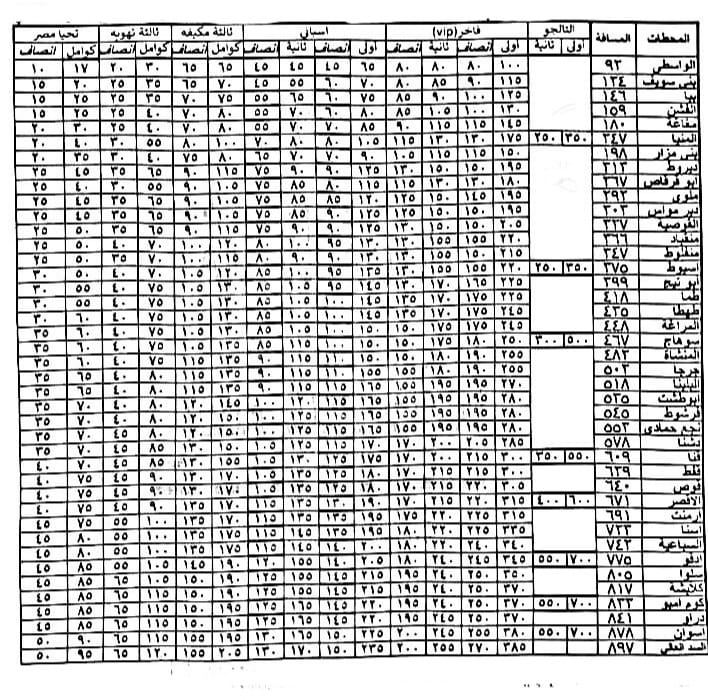 المحطات المسافة التالجو فاخر (vip) اسباني ثالثة مكيفه ثالثة تهويه تحيا مصر
اولى ثانية اولى انصاف ثانية انصاف أولى انصاف ثانية انصاف كوامل انصاف كوامل انصاف كوامل انصاف
الواسطى ٩٢ ١٠٠ ٨٠ ٨٠ ٨٠ ٦٥ ٤٥ ٤٥ ٤٥ ٦٥ ٦٥ ٣٠ ٢٠ ١٧ ١٠
بنى سويف ١٢٤ ١١٥ ٩٠ ٨٥ ٨٠ ٧٠ ٦٠ ٥٥ ٤٥ ٧٠ ٦٥ ٣٠ ٢٥ ٢٠ ١٥
ببا ١٤٦ ١٢٥ ١٠٠ ٩٠ ٨٥ ٧٥ ٦٥ ٦٠ ٥٥ ٧٥ ٧٠ ٣٥ ٢٥ ٢٠ ١٥
الفشن ١٥٩ ١٣٠ ١٠٠ ١٠٥ ٨٥ ٨٠ ٦٠ ٧٠ ٥٥ ٨٠ ٧٠ ٤٠ ٢٥ ٢٠ ١٥
مغاغة ١٨٠ ١٤٥ ١١٥ ١١٥ ٩٠ ٨٥ ٧٠ ٧٠ ٥٥ ٨٠ ٧٠ ٤٠ ٢٥ ٣٠ ٢٠
المنيا ٢٤٧ ٣٥٠ ٢٥٠ ١٧٥ ١٣٠ ١٣٠ ١١٥ ١٠٥ ٨٠ ٨٠ ٧٠ ١٠٠ ٨٠ ٥٥ ٣٠ ٤٠ ٢٠
بنى مزار ١٩٨ ١٥٠ ١١٥ ١١٠ ١٠٥ ٩٠ ٧٠ ٧٠ ٦٥ ٨٠ ٧٥ ٤٠ ٣٠ ٣٥ ٢٠
ديروط ٣١٣ ١٩٥ ١٥٠ ١٥٠ ١٣٠ ١٢٥ ٩٠ ٩٠ ٧٥ ١١٥ ٩٠ ٦٥ ٣٥ ٤٥ ٢٥
ابو قرقاص ٢٦٧ ١٨٠ ١٣٠ ١٣٠ ١١٥ ١١٠ ٨٥ ٨٥ ٧٥ ١٠٥ ٩٠ ٥٥ ٣٠ ٤٠ ٢٥
ملوى ٢٩٢ ١٩٥ ١٤٥ ١٥٠ ١٢٥ ١٢٠ ٨٥ ٨٥ ٧٥ ١٠٥ ٩٠ ٦٥ ٣٥ ٤٥ ٢٥
دير مواس ٣٠٢ ١٩٥ ١٥٠ ١٥٠ ١٢٥ ١٢٥ ٩٠ ٨٥ ٧٥ ١٠٥ ٩٠ ٦٥ ٣٥ ٤٥ ٢٥
القوصية ٣٢٧ ٢٠٥ ١٥٠ ١٥٠ ١٣٠ ١٢٥ ٩٥ ٩٠ ٧٥ ١١٠ ٩٠ ٦٥ ٣٥ ٥٠ ٢٥
منقباد ٣٦٦ ٢٢٠ ١٥٥ ١٥٥ ١٣٠ ١٣٠ ٩٥ ١٠٠ ٨٠ ١٢٠ ١٠٠ ٧٠ ٤٠ ٥٠ ٢٥
منفلوط ٣٤٧ ٢١٠ ١٥٥ ١٥٠ ١٣٠ ١٣٠ ٩٠ ٩٠ ٨٠ ١١٥ ١٠٠ ٧٠ ٣٥ ٥٠ ٢٥
اسيوط ٣٧٥ ٣٥٠ ٢٥٠ ٢٢٠ ١٥٥ ١٥٥ ١٣٠ ١٣٥ ٩٥ ١٠٠ ٨٥ ١٢٠ ١٠٥ ٧٠ ٤٠ ٥٠ ٣٠
ابو تيج ٣٩٩ ٢٢٥ ١٦٥ ١٧٠ ١٣٠ ١٤٥ ٩٥ ١٠٥ ٨٥ ١٣٠ ١٠٥ ٧٥ ٤٠ ٥٥ ٣٠
طما ٤١٨ ٢٣٥ ١٧٥ ١٧٥ ١٣٥ ١٤٥ ١٠٠ ١٠٥ ٨٥ ١٣٠ ١٠٥ ٧٥ ٤٠ ٥٥ ٣٠
طهطا ٤٢٥ ٢٤٥ ١٧٥ ١٧٥ ١٥٠ ١٤٥ ١٠٠ ١٠٥ ٨٥ ١٣٠ ١٠٥ ٧٥ ٤٠ ٦٠ ٣٠
المراغة ٤٤٨ ٢٤٥ ١٧٥ ١٧٥ ١٥٠ ١٥٠ ١٠٠ ١٠٥ ٨٥ ١٣٠ ١٠٥ ٧٥ ٤٠ ٦٠ ٣٥
سوهاج ٤٦٧ ٥٠٠ ٣٠٠ ٢٥٠ ١٧٥ ١٨٠ ١٥٠ ١٥٠ ١٠٠ ١١٠ ٨٥ ١٣٠ ١٠٥ ٧٥ ٤٠ ٦٠ ٣٥
المنشاة ٤٨٢ ٢٥٥ ١٩٠ ١٨٠ ١٥٠ ١٥٠ ١١٠ ١١٥ ٩٠ ١٣٥ ١١٠ ٧٥ ٤٠ ٦٠ ٣٥
جرجا ٥٠٢ ٢٥٥ ١٩٠ ١٨٠ ١٥٥ ١٥٥ ١١٠ ١١٥ ٩٠ ١٣٥ ١١٠ ٨٠ ٤٠ ٦٥ ٣٥
البلينا ٥١٨ ٢٧٠ ١٩٥ ١٩٥ ١٥٥ ١٦٥ ١١٥ ١١٥ ٩٠ ١٣٥ ١١٥ ٨٠ ٤٠ ٦٥ ٣٥
ابوطشت ٥٣٥ ٢٨٠ ١٩٥ ١٩٥ ١٥٥ ١٦٥ ١١٥ ١٢٠ ١٠٠ ١٤٥ ١٢٠ ٨٠ ٤٠ ٧٠ ٣٥
فرشوط ٥٤٥ ٢٨٠ ١٩٥ ١٩٥ ١٥٥ ١٦٥ ١١٥ ١٢٥ ١٠٠ ١٥٠ ١٢٠ ٨٠ ٤٥ ٧٠ ٣٥
نجع حمادى ٥٥٣ ٢٨٠ ١٩٥ ١٩٠ ١٥٥ ١٦٥ ١١٥ ١٢٥ ١٠٠ ١٥٠ ١٢٠ ٨٠ ٤٥ ٧٠ ٣٥
دشنا ٥٧٨ ٢٨٥ ٢٠٥ ٢٠٠ ١٧٠ ١٧٠ ١١٥ ١٢٥ ١٠٥ ١٥٠ ١٣٠ ٨٥ ٤٥ ٧٠ ٣٥
قنا ٦٠٩ ٥٥٠ ٣٥٠ ٣٠٠ ٢١٥ ٢٠٠ ١٧٠ ١٧٥ ١٢٠ ١٣٠ ١٠٥ ١٥٥ ١٣٠ ٨٥ ٤٥ ٧٠ ٤٠
قفط ٦٢٩ ٣٠٠ ٢١٥ ٢١٥ ١٧٠ ١٨٠ ١٢٥ ١٣٥ ١٠٥ ١٧٠ ١٣٠ ٩٠ ٤٥ ٧٥ ٤٠
قوص ٦٤٠ ٣٠٥ ٢٢٠ ٢١٥ ١٧٠ ١٨٠ ١٢٥ ١٣٥ ١٠٥ ١٧٠ ١٣٠ ٩٠ ٤٥ ٧٥ ٤٠
الاقصر ٦٧١ ٦٠٠ ٤٠٠ ٣١٥ ٢٢٠ ٢١٥ ١٧٠ ١٩٠ ١٣٠ ١٣٥ ١١٥ ١٧٠ ١٣٥ ٩٠ ٤٥ ٧٥ ٤٠
ارمنت ٦٩١ ٣٢٥ ٢٢٠ ٢٢٠ ١٧٥ ١٩٥ ١٣٥ ١٣٥ ١١٥ ١٧٠ ١٣٥ ١٠٠ ٥٥ ٧٥ ٤٥
اسنا ٧٢٣ ٣٣٥ ٢٢٥ ٢٢٠ ١٨٠ ١٩٥ ١٣٥ ١٤٥ ١١٥ ١٧٠ ١٣٥ ١٠٠ ٥٥ ٨٠ ٤٥
السباعية ٧٤٢ ٣٤٠ ٢٤٠ ٢٢٠ ١٨٠ ٢٠٠ ١٤٠ ١٤٥ ١١٥ ١٧٥ ١٣٥ ١٠٠ ٥٥ ٨٠ ٤٥
ادفو ٧٧٥ ٧٠٠ ٥٥٠ ٣٤٥ ٢٤٠ ٢٤٥ ١٨٠ ٢٠٥ ١٤٠ ١٥٥ ١٢٠ ١٩٠ ١٤٥ ١٠٥ ٥٥ ٨٥ ٤٥
سلوا ٨٠٥ ٣٥٠ ٢٥٠ ٢١٥ ١٩٥ ٢١٥ ١٤٥ ١٥٥ ١٢٥ ١٩٠ ١٥٠ ١١٠ ٦٥ ٨٥ ٤٥
كلابشة ٨١٧ ٣٧٠ ٢٥٠ ٢٤٥ ١٩٠ ٢٢٠ ١٤٥ ١٦٥ ١٢٥ ١٩٠ ١٥٠ ١١٠ ٦٥ ٨٥ ٤٥
كوم امبو ٨٣٣ ٧٠٠ ٥٥٠ ٣٧٠ ٢٥٠ ٢٤٥ ١٩٠ ٢٢٠ ١٤٥ ١٦٥ ١٢٥ ١٩٥ ١٥٠ ١١٠ ٦٥ ٨٥ ٤٥
دراو ٨٤١ ٣٧٠ ٢٥٠ ٢٤٥ ١٩٠ ٢٢٠ ١٤٥ ١٦٥ ١٢٥ ١٩٥ ١٥٠ ١١٠ ٦٥ ٨٥ ٤٥
اسوان ٨٧٨ ٧٠٠ ٥٥٠ ٣٨٠ ٢٥٥ ٢٤٥ ٢٠٠ ٢٢٥ ١٥٠ ١٦٥ ١٣٠ ١٩٥ ١٥٥ ١١٥ ٦٥ ٩٠ ٥٠
السد العالى ٨٩٧ ٣٨٥ ٢٧٠ ٢٥٥ ٢٠٠ ٢٣٥ ١٥٠ ١٧٠ ١٣٠ ٢٠٥ ١٥٥ ١٢٠ ٦٥ ٩٥ ٥٠